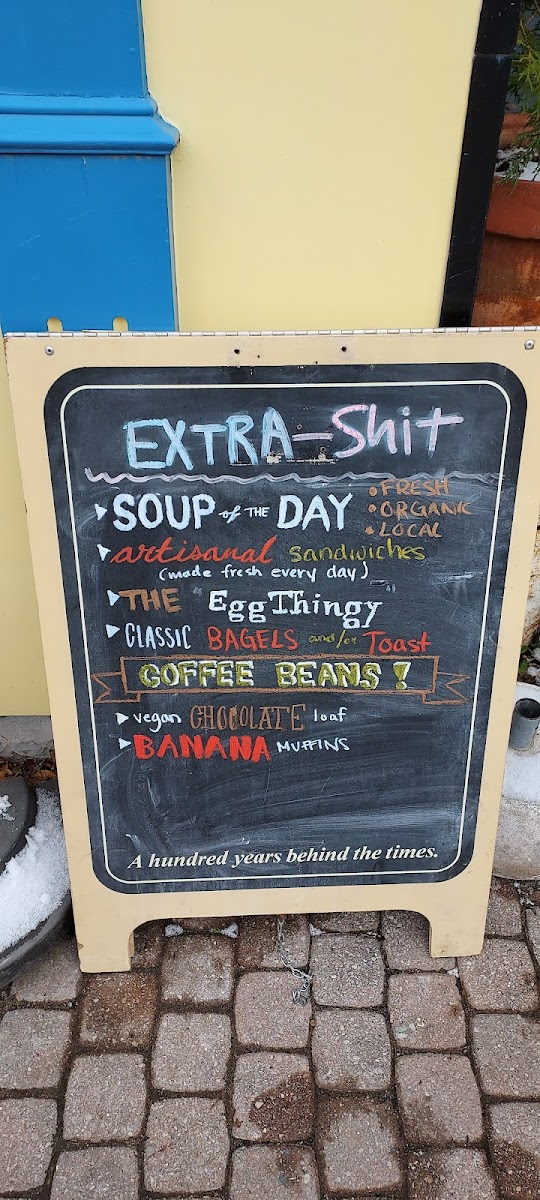 EXTRA-Shit
SOUP of THE DAY
• FRESH
• ORGANIC
• LOCAL
artisanal sandwiches
(made fresh every day)
THE EggThingy
CLASSIC BAGELS and/or Toast
COFFEE BEANS!
vegan CHOCOLATE loaf
BANANA MUFFINS
A hundred years behind the times.